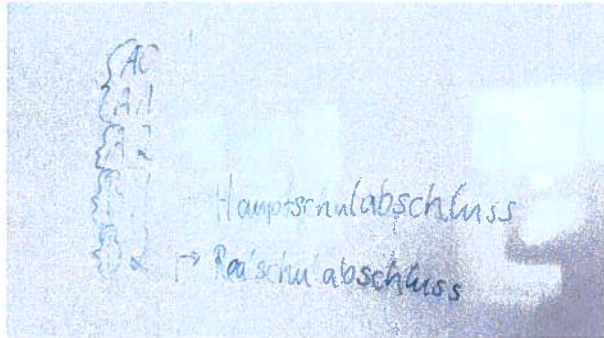 A0
A1
A2
B1 Hauptschulabschluss
B2 → Realschulabschluss